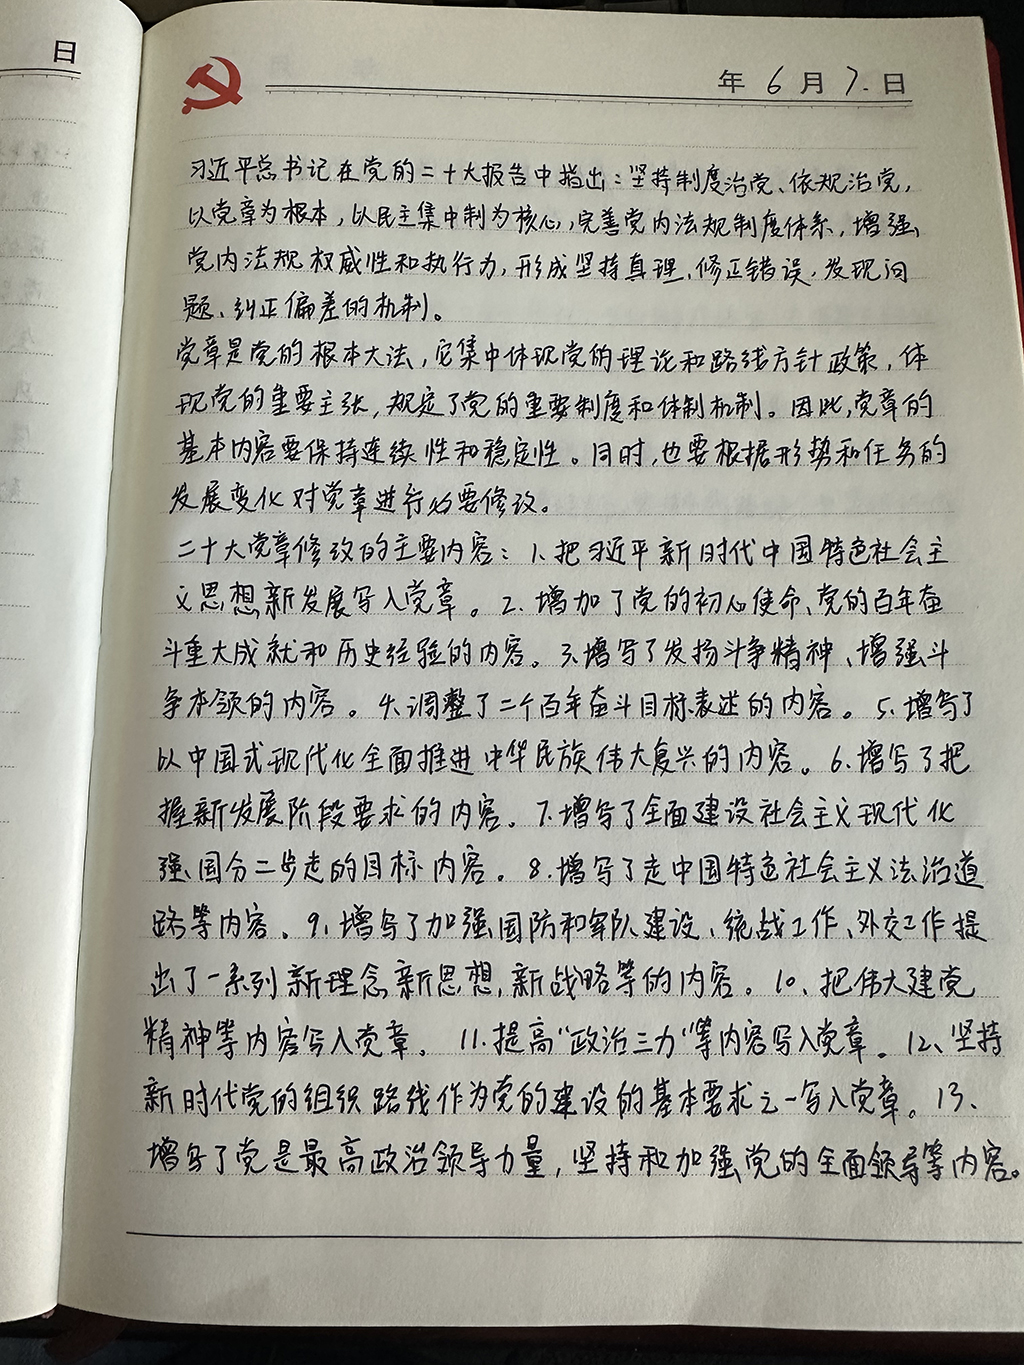 日
年 6 月 7. 日
习近平总书记在党的二十大报告中指出：坚持制度治党、依规治党，
以党章为根本，以民主集中制为核心，完善党内法规制度体系，增强
党内法规权威性和执行力，形成坚持真理、修正错误，发现问
题、纠正偏差的机制。
党章是党的根本大法，它集中体现党的理论和路线方针政策，体
现党的重要主张，规定了党的重要制度和体制机制。因此，党章的
基本内容要保持连续性和稳定性。同时，也要根据形势和任务的
发展变化对党章进行必要修改。
二十大党章修改的主要内容：1、把习近平新时代中国特色社会主
义思想新发展写入党章。2、增加了党的初心使命、党的百年奋
斗重大成就和历史经验的内容。3、增写了发扬斗争精神、增强斗
争本领的内容。4、调整了二个百年奋斗目标表述的内容。5、增写了
以中国式现代化全面推进中华民族伟大复兴的内容。6、增写了把
握新发展阶段要求的内容。7、增写了全面建设社会主义现代化
强国分二步走的目标内容。8、增写了走中国特色社会主义法治道
路等内容。9、增写了加强国防和军队建设、统战工作、外交工作提
出了一系列新理念新思想，新战略等的内容。10、把伟大建党
精神等内容写入党章。11、提高“政治三力”等内容写入党章。12、坚持
新时代党的组织路线作为党的建设的基本要求之一写入党章。13、
增写了党是最高政治领导力量，坚持和加强党的全面领导等内容。